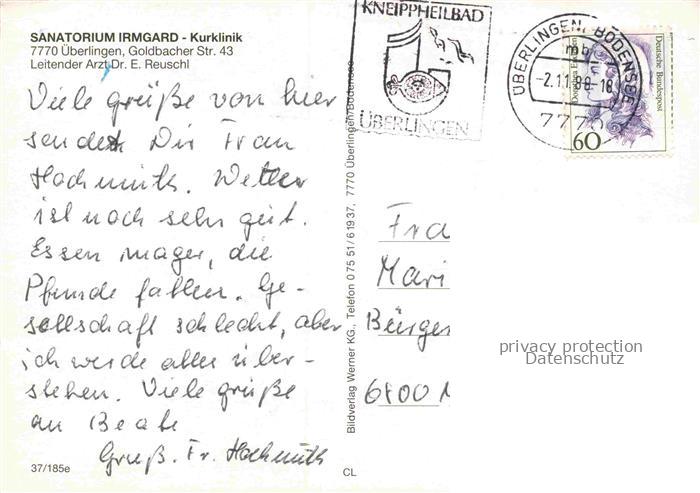 SANATORIUM IRMGARD - Kurklinik
7770 Überlingen, Goldbacher Str. 43
Leitender Arzt Dr. E. Reuschl
Viele grüße von hier
sendet Dir Frau
Hochmuth. Wetter
ist noch sehr gut.
Essen mager, die
Pfunde fallen. Ge-
sellschaft schlecht, aber
ich werde alles über-
stehen. Viele grüße
an Beate
Gruß. Fr. Hochmuth
37/185e
CL
Bildverlag Werner KG., Telefon 0 75 51/6 19 37, 7770 Überlingen/Bodensee
KNEIPPHEILBAD
ÜBERLINGEN
ÜBERLINGEN, BODENSEE
mb
-2.11.89-18
7770
Deutsche Bundespost
60
Fra
Mari
Bürger
6800 M
privacy protection
Datenschutz